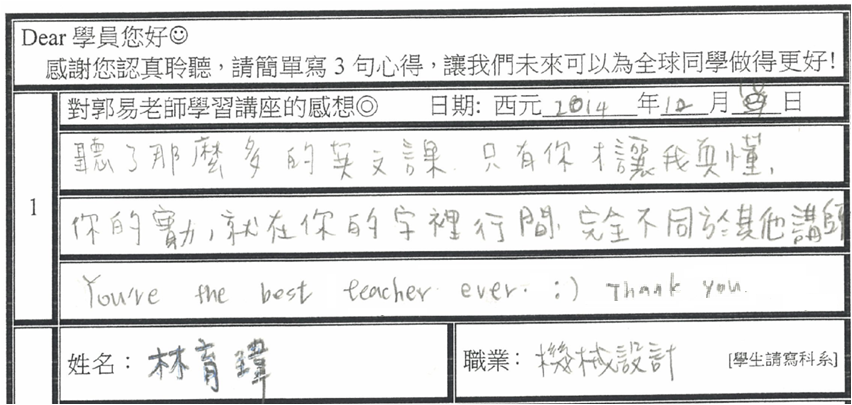 Dear 學員您好☺
感謝您認真聆聽，請簡單寫 3 句心得，讓我們未來可以為全球同學做得更好!
1
對郭易老師學習講座的感想◎ 日期: 西元 2014 年 12 月 日
聽了那麼多的英文課. 只有你才讓我真懂,
你的實力, 就在你的字裡行間. 完全不同於其他講師
You're the best teacher ever. :) Thank you.
姓名： 林育瑋 職業： 機械設計 [學生請寫科系]